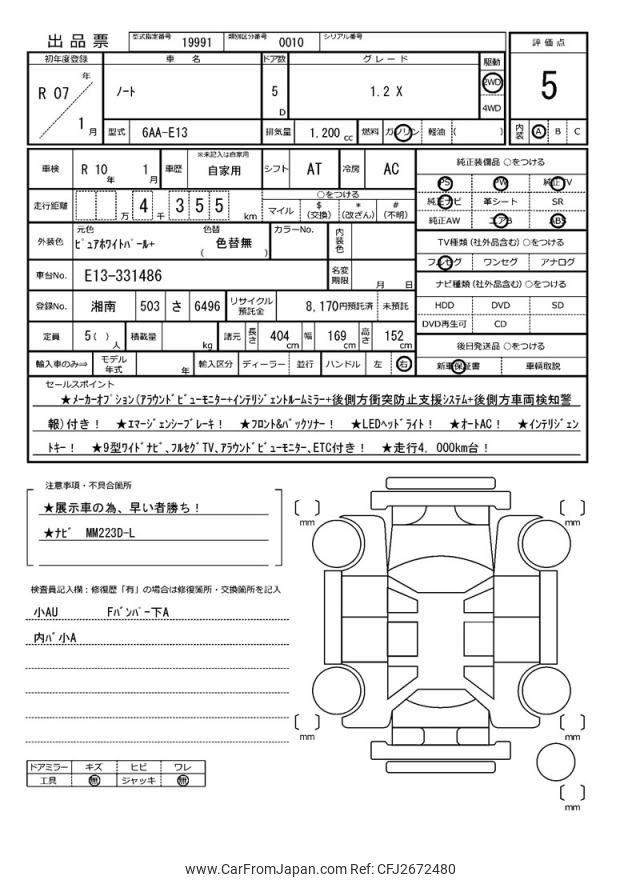 出品票 型式指定番号 19991 類別区分番号 0010 シリアル番号 評価点
初年度登録 車名 ドア数 グレード 駆動
R 07 年 1 月 ノート 5 D 1.2 X 2WD 4WD 5
型式 6AA-E13 排気量 1.200 cc 燃料 ガソリン 軽油 ( ) 内装 A B C
車検 R 10 年 1 月 車歴 ※未記入は自家用 自家用 シフト AT 冷房 AC 純正装備品 ○をつける
PS PW 純正TV
走行距離 万 4 千 355 km ○をつける
マイル $(交換) *(改ざん) #(不明)
純正ナビ 革シート SR
純正AW エアB ABS
外装色 元色 ピュアホワイトパール+ 色替 ( 色替無 ) カラーNo. 内装色
TV種類(社外品含む) ○をつける
フルセグ ワンセグ アナログ
車台No. E13-331486 名変期限 月 日
ナビ種類(社外品含む) ○をつける
登録No. 湘南 503 さ 6496 リサイクル預託金 8,170円預託済 未預託
HDD DVD SD
DVD再生可 CD
定員 5( ) 人 積載量 kg 諸元 長さ 404 cm 幅 169 cm 高さ 152 cm
後日発送品 ○をつける
輸入車のみ⇒ モデル年式 年 輸入区分 ディーラー 並行 ハンドル 左 右 新車保証書 車輌取説
セールスポイント
★メーカーオプション(アラウンドビューモニター+インテリジェントルームミラー+後側方衝突防止支援システム+後側方車両検知警
報)付き! ★エマージェンシーブレーキ! ★フロント&バックソナー! ★LEDヘッドライト! ★オートAC! ★インテリジェン
トキー! ★9型ワイドナビ、フルセグTV、アラウンドビューモニター、ETC付き! ★走行4,000km台!
注意事項・不具合箇所
★展示車の為、早い者勝ち!
★ナビ MM223D-L
検査員記入欄:修復歴「有」の場合は修復箇所・交換箇所を記入
小AU Fバンパー下A
内バ小A
mm mm
mm mm
mm
ドアミラー キズ ヒビ ワレ
工具 無 ジャッキ 無
www.CarFromJapan.com Ref: CFJ2672480